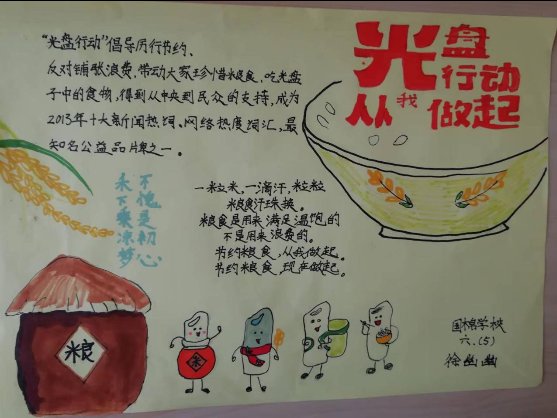 光盘
行动
从我做起
“光盘行动”倡导厉行节约、
反对铺张浪费,带动大家珍惜粮食、吃光盘
子中的食物,得到从中央到民众的支持,成为
2013年十大新闻热词、网络热度词汇,最
知名公益品牌之一。
不愧是初心
禾下乘凉梦
一粒米,一滴汗,粒粒
粮食汗珠换。
粮食是用来满足温饱的
不是用来浪费的。
节约粮食,从我做起。
节约粮食,现在做起。
粮
米
国棉学校
六.(5)
徐幽幽